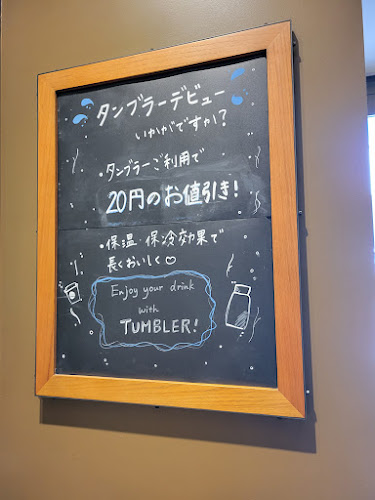 タンブラーデビュー
いかがですか?
・タンブラーご利用で
20円のお値引き!
・保温・保冷効果で
長くおいしく♡
Enjoy your drink
with
TUMBLER!